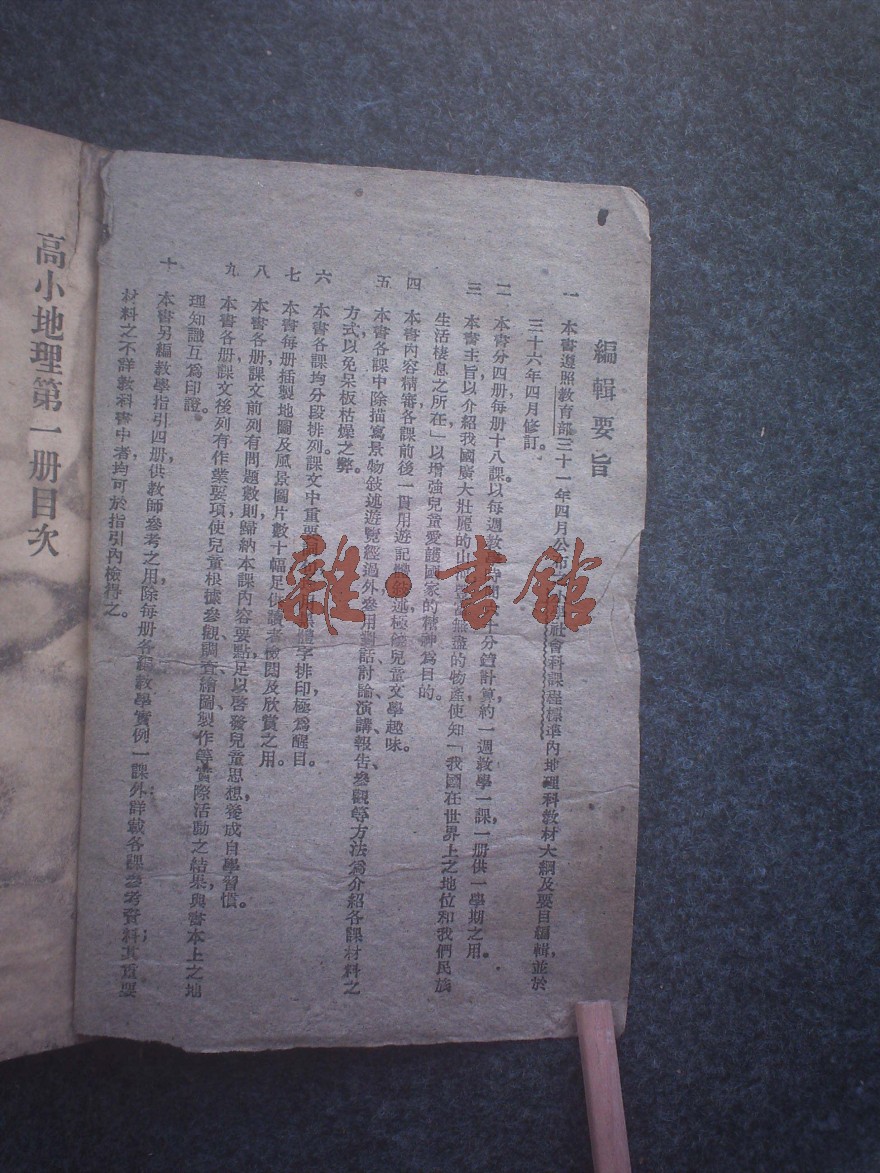 編輯要旨
一 本書遵照教育部三十一年四月公布 社會科課程標準內地理科教材大綱及要目編輯,並於
三十六年四月修訂。
二 本書分四册,每册十八課。以每週教學時間 十分鐘計算,約一週教學一課,一册供一學期之用。
三 本書主旨以介紹我國廣大壯麗的山河 無盡的物產,使知「我國在世界上之地位和我們民族
生活棲息之所在」以增強兒童愛護國家的精神爲目的。
四 本書內容精審,各課前後一貫,用遊記體敍述,極饒兒童文學趣味。
五 本書各課中除描寫景物敍述遊覽經過外,參用對話、討論、演講、報告、參觀等方法,爲介紹各課材料之
方式,以免呆板枯燥之弊。
六 本書各課均分段排列。課文中重要 體字排印,極爲醒目。
七 本書每册插製地圖及風景圖片數十幅,足供讀者檢閱及欣賞之用。
八 本書各册課文前列有問題數則,歸納本課內容要點,足以啓發兒童思想,養成自學習慣。
九 本書各册課文後列有作業要項,使兒童根據參觀、調查、繪圖、製作等實際活動之結果,與書本上之地
理知識互爲印證。
十 本書另編教學指引四册,供教師參考之用,除每册各編教學實例一課外,詳載各課參考資料;其重要
材料之不詳教科書中者,均可於指引內檢得之。
高小地理第一册目次
雜·書館